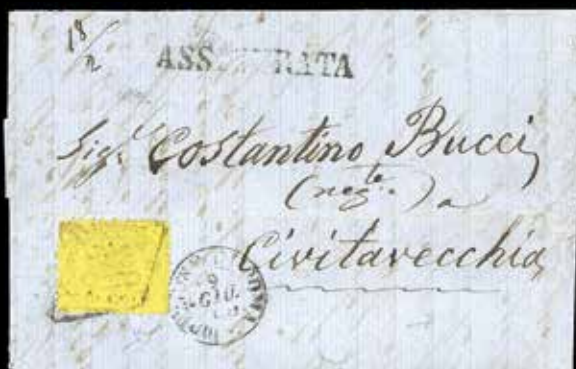 18/2
ASSICURATA
Sigr Costantino Bucci
(negte.) a
Civitavecchia
GIU.